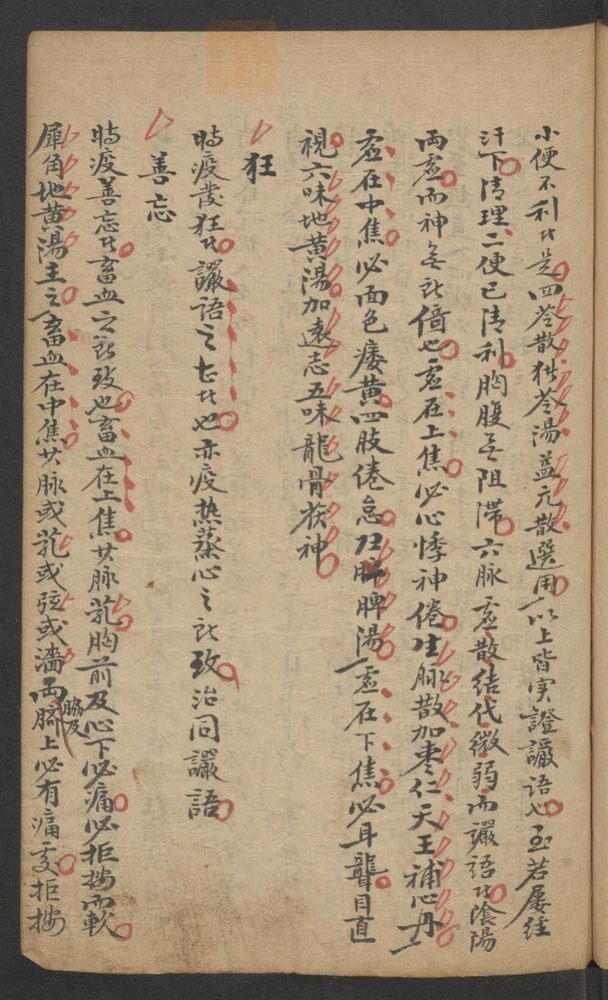 小便不利者是四苓散猪苓湯益元散選用以上皆实證讝语也至若屡经
汗下清理二便已清利胸腹无阻滞六脉虚散结代微弱而讝语者陰陽
两虚而神无所倚也虚在上焦必心悸神倦生脉散加枣仁天王補心丹
虚在中焦必面色痿黄四肢倦怠归脾湯虚在下焦必耳聾目直
視六味地黄湯加遠志五味龍骨茯神
狂
時疫發狂者讝语之甚者也亦疫热蒸心之所致治同讝语
善忘
時疫善忘者畜血之所致也畜血在上焦其脉芤胸前及心下必痛必拒按而軟
犀角地黄湯主之畜血在中焦其脉或芤或弦或濇两脇及脐上必有痛處拒按